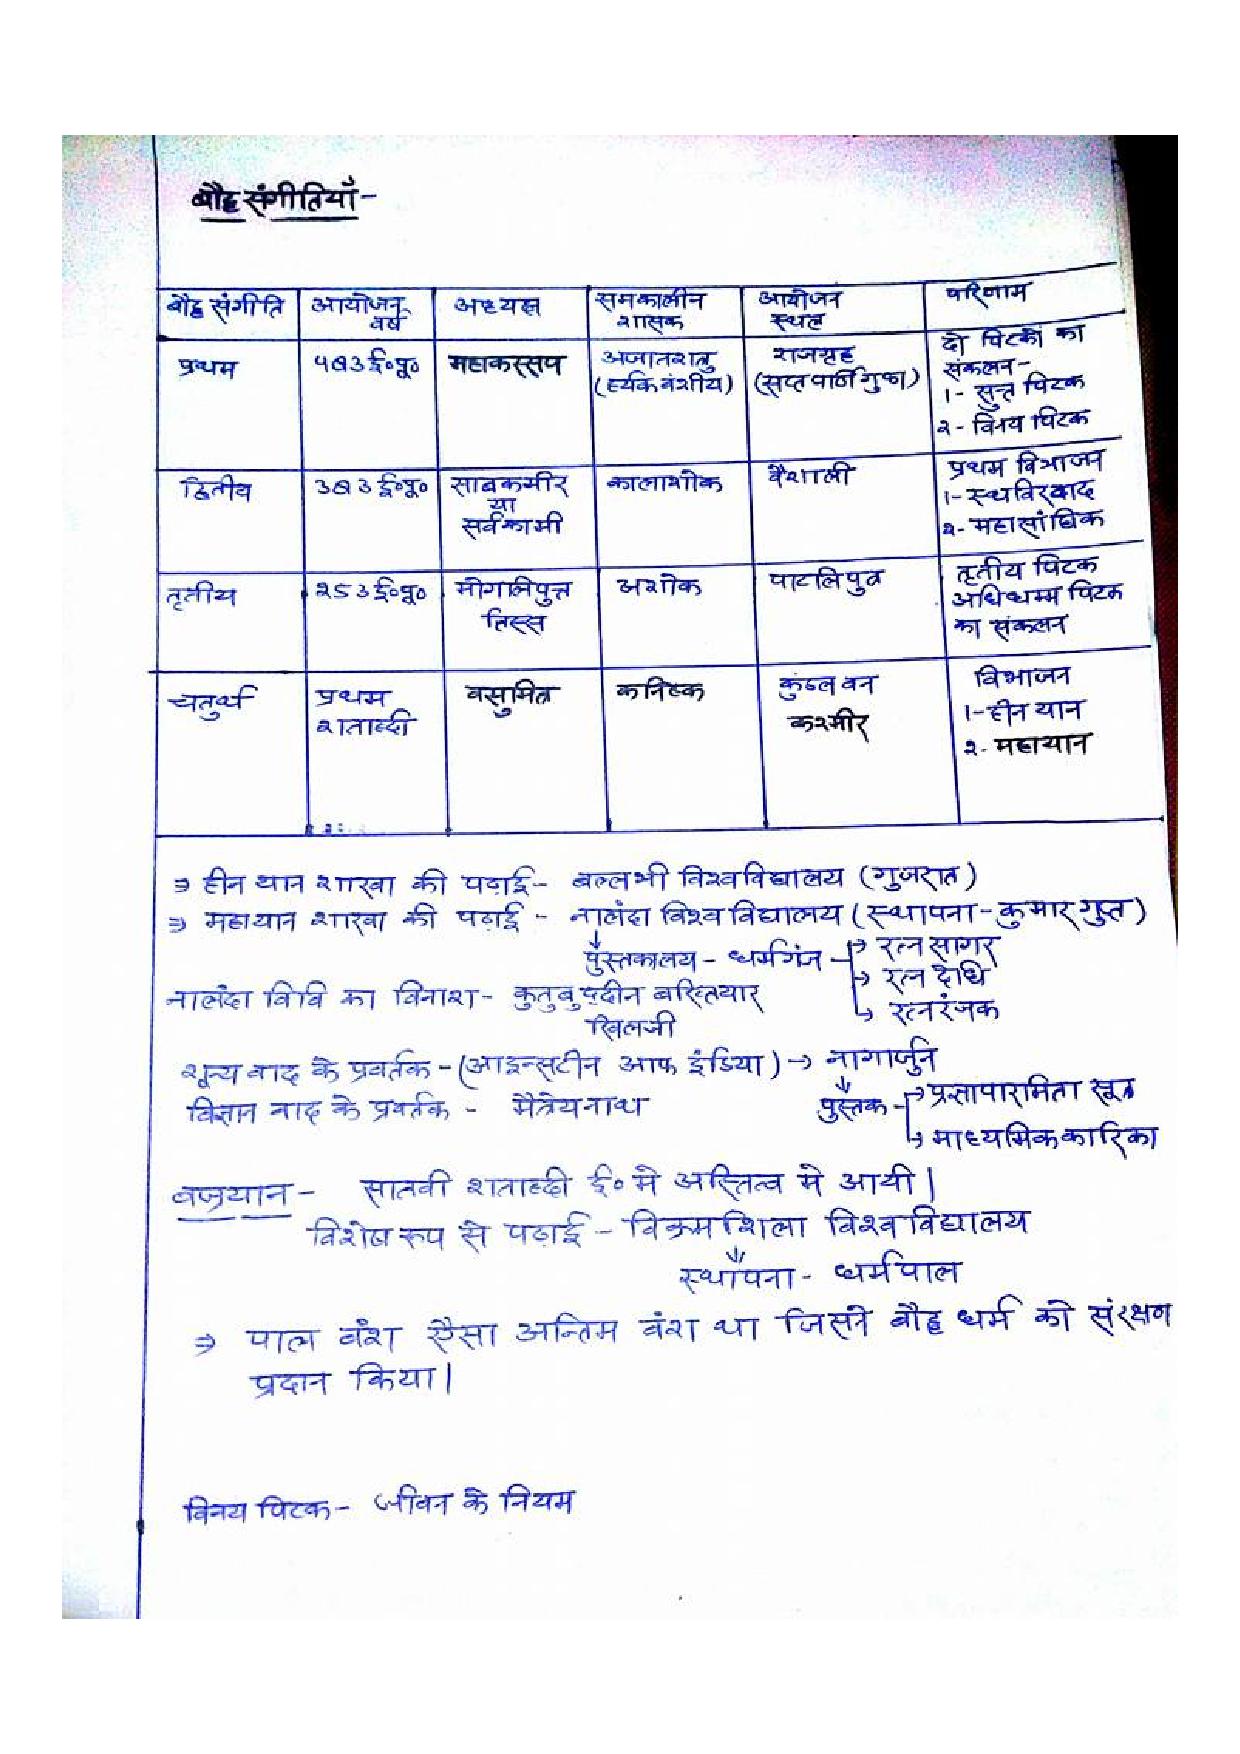 बौद्ध संगीतियाँ -
बौद्ध संगीति | आयोजन वर्ष | अध्यक्ष | समकालीन शासक | आयोजन स्थल | परिणाम
प्रथम | 483 ई॰पू॰ | महाकस्सप | अजातशत्रु (हर्यक वंशीय) | राजगृह (सप्तपर्णि गुफा) | दो पिटकों का संकलन - 1- सुत्त पिटक २- विनय पिटक
द्वितीय | 383 ई॰पू॰ | साबकमीर या सर्वकामी | कालाशोक | वैशाली | प्रथम विभाजन 1- स्थविरवाद 2- महासांघिक
तृतीय | २५3 ई॰पू॰ | मोगलिपुत्त तिस्स | अशोक | पाटलिपुत्र | तृतीय पिटक अभिधम्म पिटक का संकलन
चतुर्थ | प्रथम शताब्दी | वसुमित्र | कनिष्क | कुंडलवन कश्मीर | विभाजन 1- हीन यान २- महायान
⇒ हीन यान शाखा की पढ़ाई - बल्लभी विश्वविद्यालय (गुजरात)
⇒ महायान शाखा की पढ़ाई - नालंदा विश्वविद्यालय (स्थापना - कुमारगुप्त)
पुस्तकालय - धर्मगंज → रत्नसागर
→ रत्न दधि
→ रत्नरंजक
नालंदा वि॰वि का विनाश - कुतुबुद्दीन बख्तियार
खिलजी
शून्य वाद के प्रवर्तक - (आइन्सटीन आफ इंडिया) → नागार्जुन
विज्ञान वाद के प्रवर्तक - मैत्रेयनाथ
पुस्तक → प्रज्ञापारमिता सूत्र
→ माध्यमिककारिका
वज्रयान - सातवी शताब्दी ई॰ मे अस्तित्व मे आयी।
विशेष रूप से पढ़ाई - विक्रमशिला विश्वविद्यालय
स्थापना - धर्मपाल
⇒ पाल वंश ऐसा अन्तिम वंश था जिसने बौद्ध धर्म को संरक्षण
प्रदान किया।
विनय पिटक - जीवन के नियम